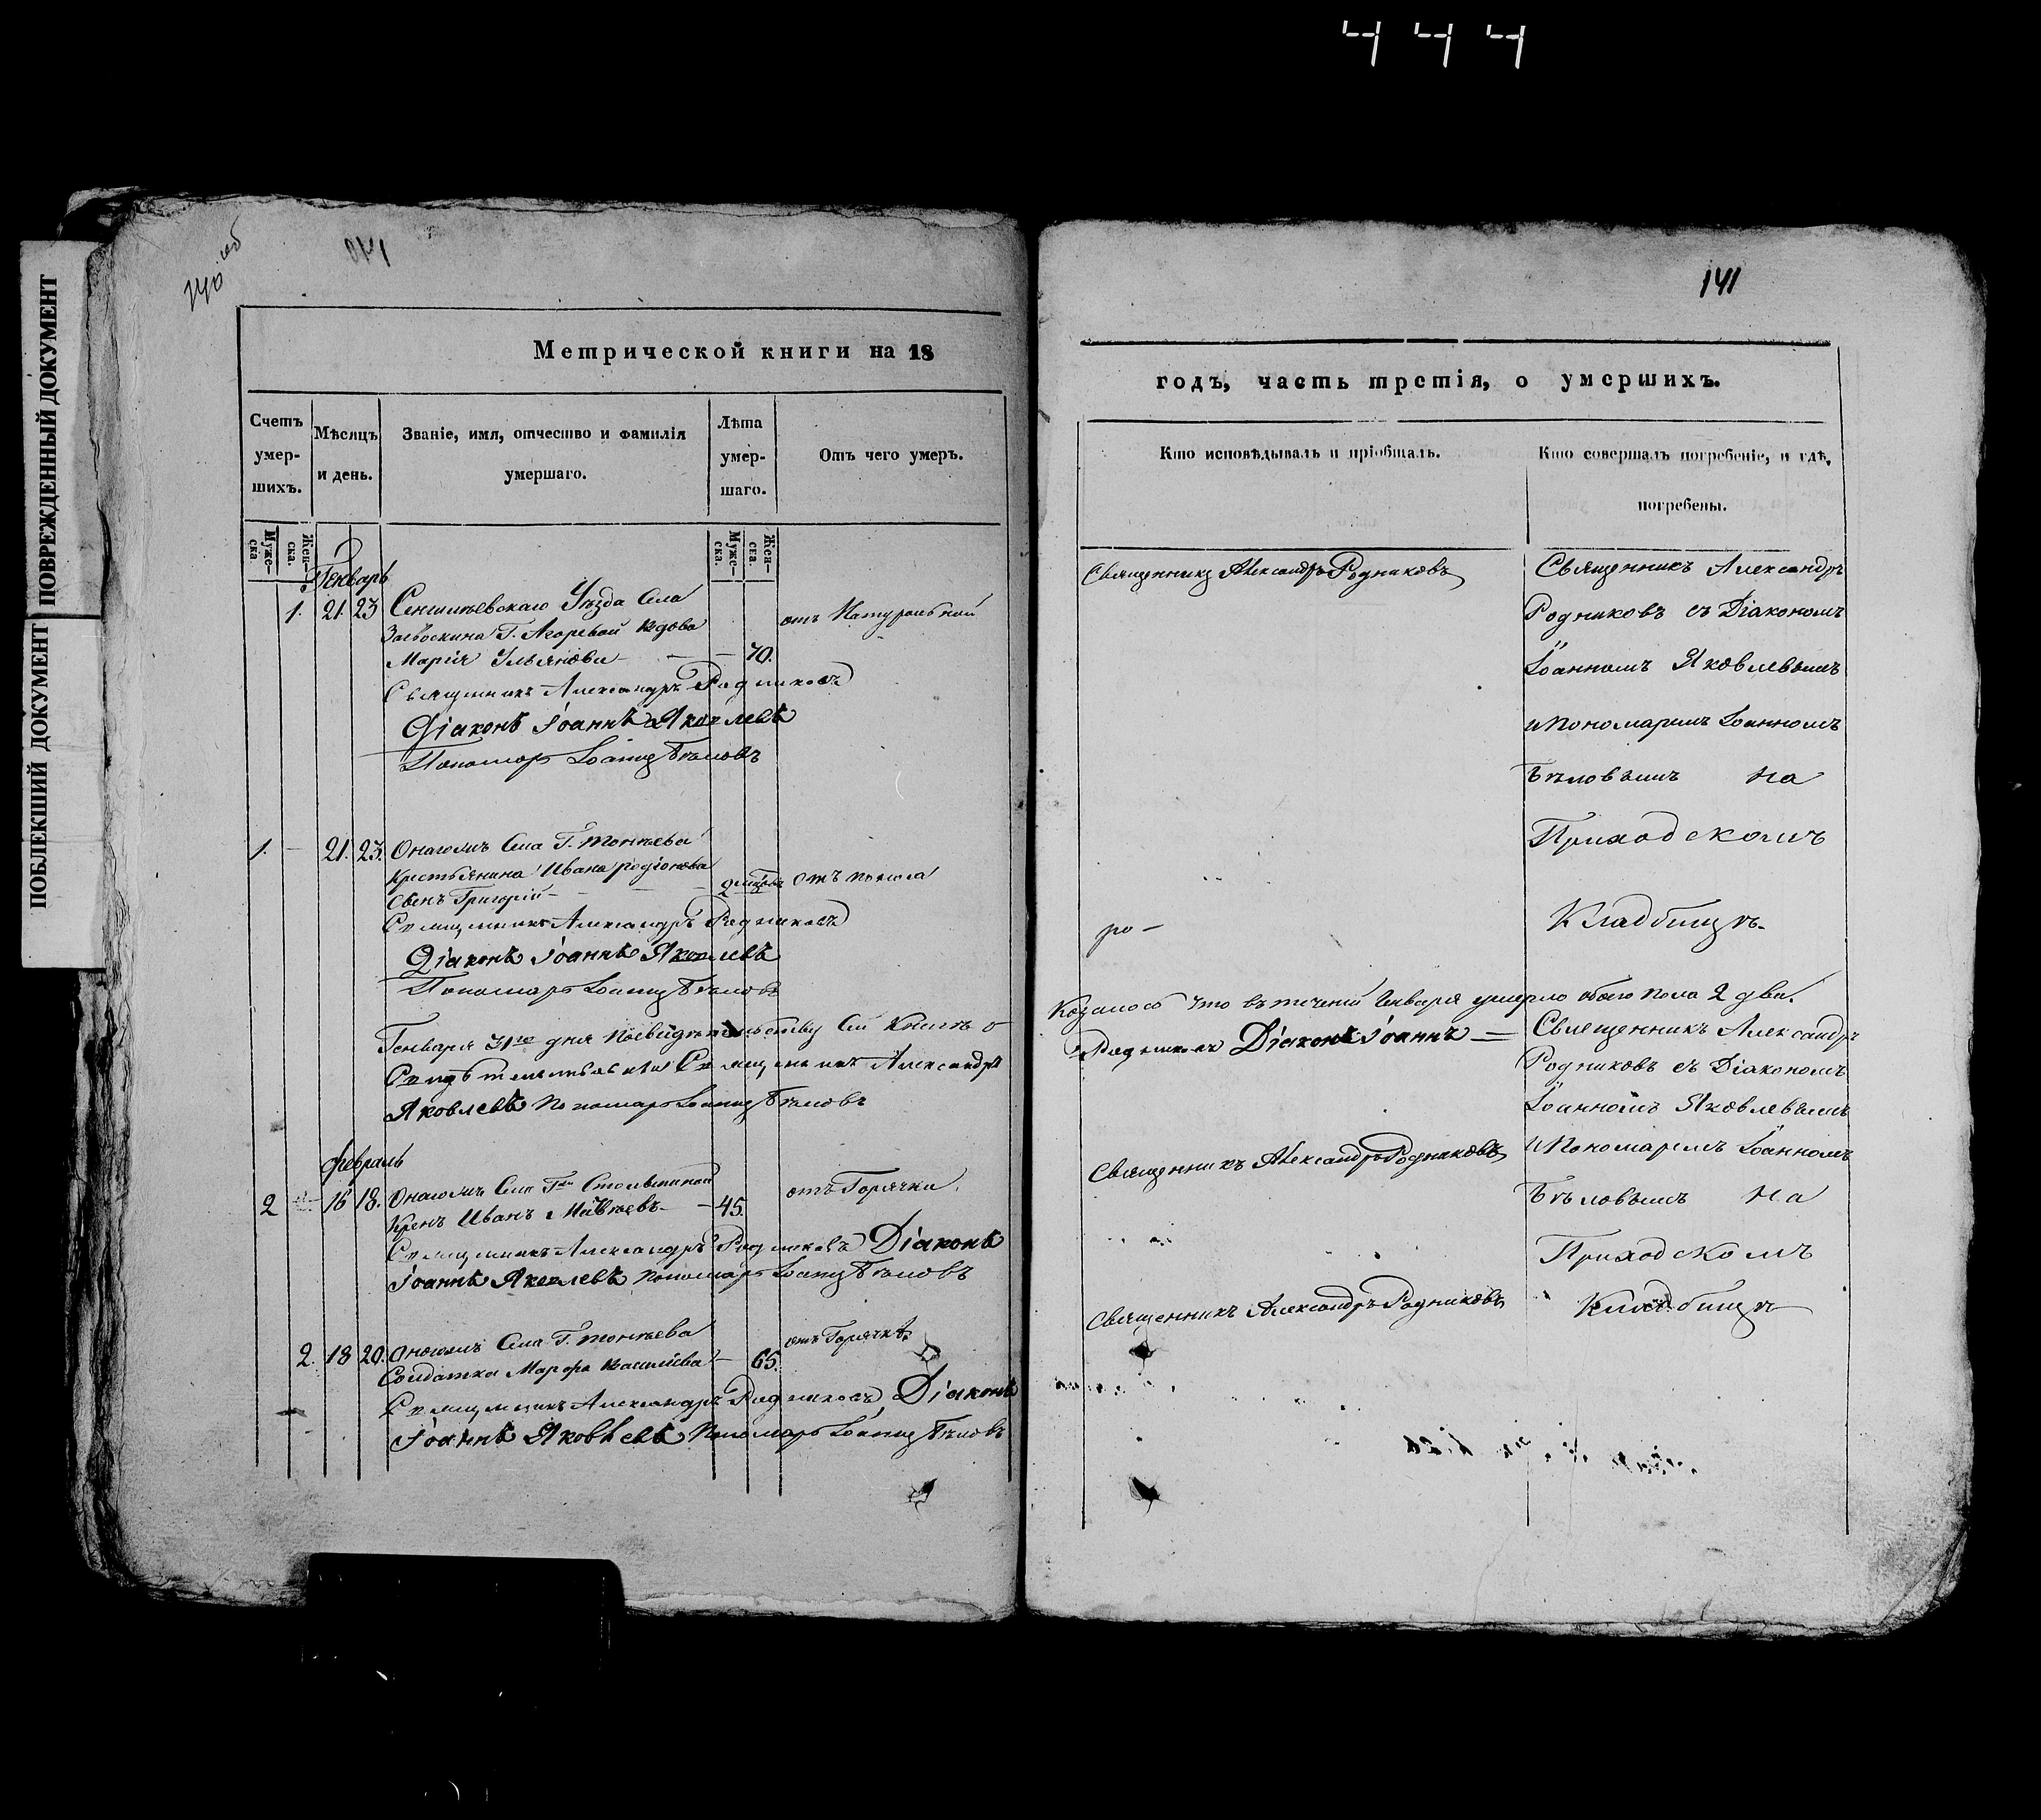 444
ПОВРЕЖДЕННЫЙ ДОКУМЕНТ
ПОБЛЕКШИЙ ДОКУМЕНТ
141
Метрической книги на 18
годъ, часть третія, о умершихъ.
Счетъ умер-шихъ.
Мѣсяцъ и день.
Званіе, имя, отчество и фамилія умершаго.
Лѣта умер-шаго.
Отъ чего умеръ.
Кто исповѣдывалъ и пріобщалъ.
Кто совершалъ погребеніе, и гдѣ погребены.
Муже-ска.
Жен-ска.
Муже-ска.
Жен-ска.
Генварь
1. 21. 23 Сенгилѣевскаго Уѣзда Села
Г. вдова отъ Натуральной
Марія Ульянова 70.
Священникъ Александръ Родниковъ
Діаконъ Іоаннъ Яковлевъ
Пономарь Іоаннъ Бѣловъ
1. 21. 23. Онагожъ Села Г. Топтѣева
Крестьянина Ивана Родіонова
сынъ Григорій отъ поноса
Священникъ Александръ Родниковъ
Діаконъ Іоаннъ Яковлевъ
Пономарь Іоаннъ Бѣловъ
Генваря 31го дня По свидѣтельству сей Книги о
Священникъ Александръ
Яковлевъ Пономарь Іоаннъ Бѣловъ
Февраль
2 16 18. Онагожъ Села Столыпиной отъ Горячки
Крѣнъ Иванъ Матвѣевъ 45.
Священникъ Александръ Родниковъ Діаконъ
Іоаннъ Яковлевъ Пономарь Іоаннъ Бѣловъ
2. 18 20. Онагожъ Села Г. Топтѣева отъ Горячкѣ
Солдатка Марфа Василiева 65.
Священникъ Александръ Родниковъ Діаконъ
Іоаннъ Яковлевъ Пономарь Іоаннъ Бѣловъ
Священникъ Александръ Родниковъ
Священникъ Александръ
Родниковъ съ Діакономъ
Іоанномъ Яковлевымъ
и Пономаремъ Іоанномъ
Бѣловымъ на
Приходскомъ
Кладбищѣ.
Казалось что въ теченіи Генваря умерло обоего пола 2 два.
Родниковъ Діаконъ Іоаннъ
Священникъ Александръ
Родниковъ съ Діакономъ
Іоанномъ Яковлевымъ
Священникъ Александръ Родниковъ
и Пономаремъ Іоанномъ
Бѣловымъ на
Приходскомъ
Священникъ Александръ Родниковъ
Кладбищѣ